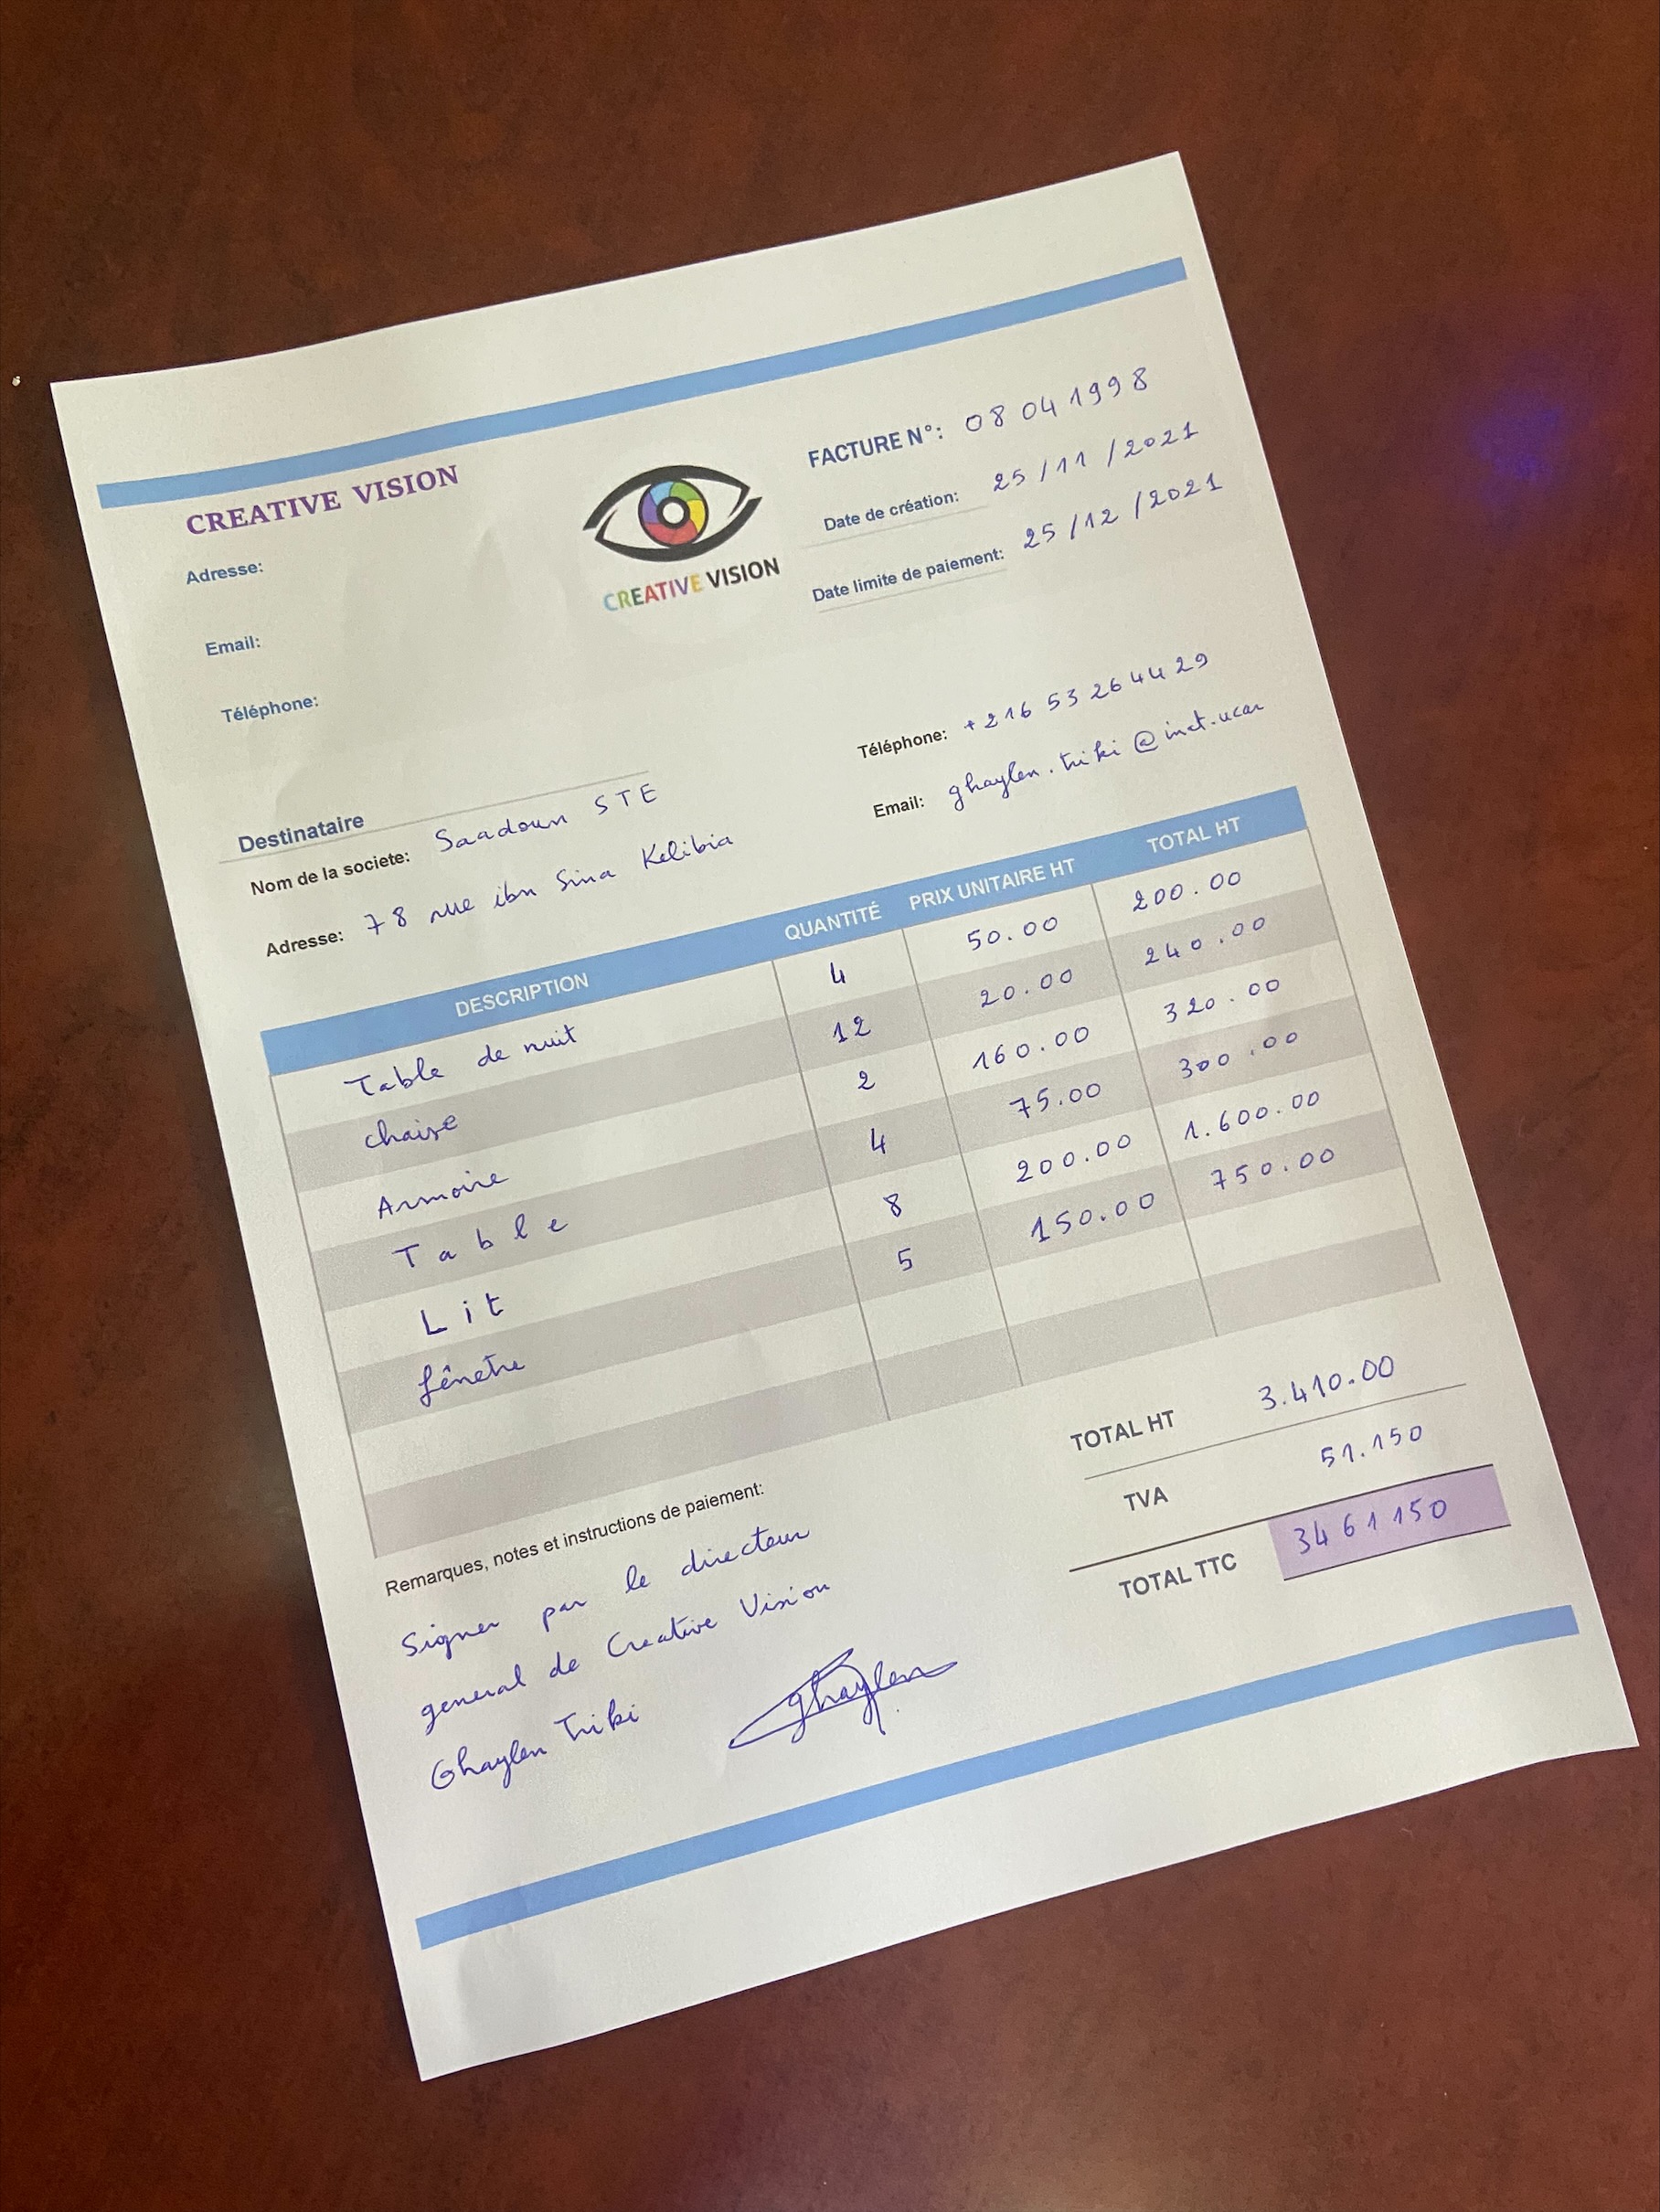 CREATIVE VISION
Adresse:
Email:
Téléphone:
CREATIVE VISION
FACTURE N°: 08 04 1998
Date de création: 25/11/2021
Date limite de paiement: 25/12/2021
Destinataire
Nom de la societe: Saadoun STE
Adresse: 78 rue ibn Sina Kelibia
Téléphone: +216 53 26 44 29
Email: ghaylen.triki@inct.ucar
DESCRIPTION QUANTITÉ PRIX UNITAIRE HT TOTAL HT
Table de nuit 4 50.00 200.00
chaise 12 20.00 240.00
Armoire 2 160.00 320.00
Table 4 75.00 300.00
Lit 8 200.00 1.600.00
fênetre 5 150.00 750.00
TOTAL HT 3.410.00
TVA 51.150
TOTAL TTC 3461150
Remarques, notes et instructions de paiement:
Signer par le directeur
general de Creative Vision
Ghaylen Triki
Ghaylen